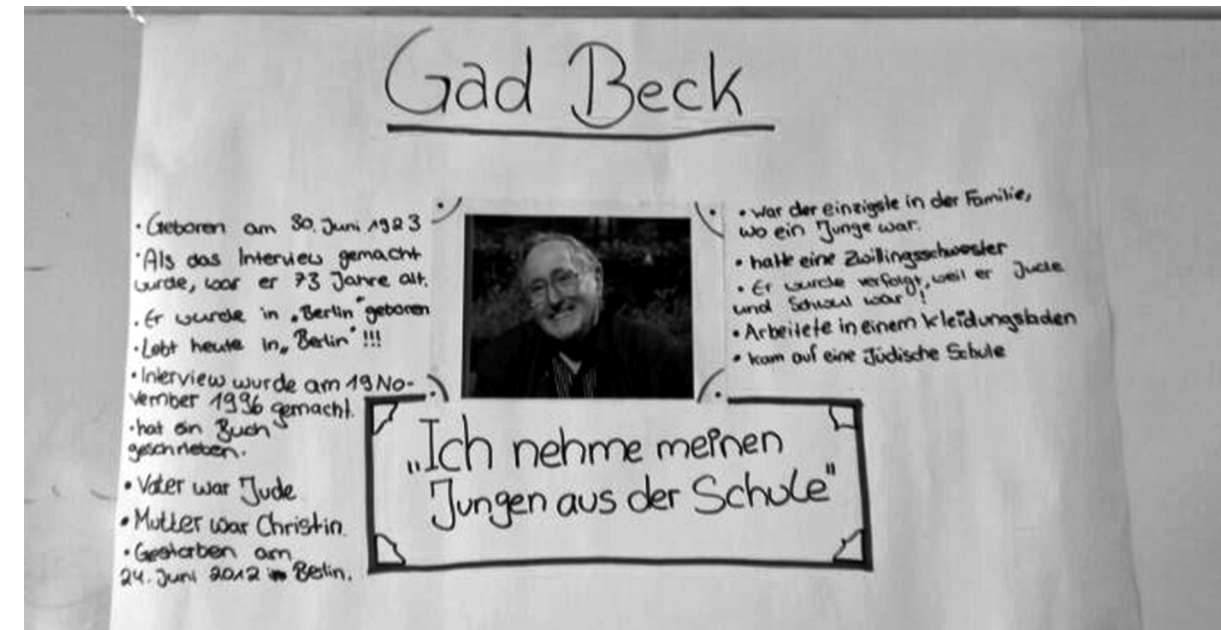 Gad Beck
• Geboren am 30. Juni 1923
• Als das Interview gemacht
wurde, war er 73 Jahre alt.
• Er wurde in „Berlin" geboren
• Lebt heute in „Berlin" !!!
• Interview wurde am 19 No-
vember 1996 gemacht.
• hat ein Buch
geschrieben.
• Vater war Jude
• Mutter war Christin.
• Gestorben am
24. Juni 2012 in Berlin.
• war der einzigste in der Familie,
wo ein Junge war.
• hatte eine Zwillingsschwester
• Er wurde verfolgt, weil er Jude
und Schwul war !
• Arbeitete in einem Kleidungsladen
• kam auf eine Jüdische Schule
„Ich nehme meinen
Jungen aus der Schule"